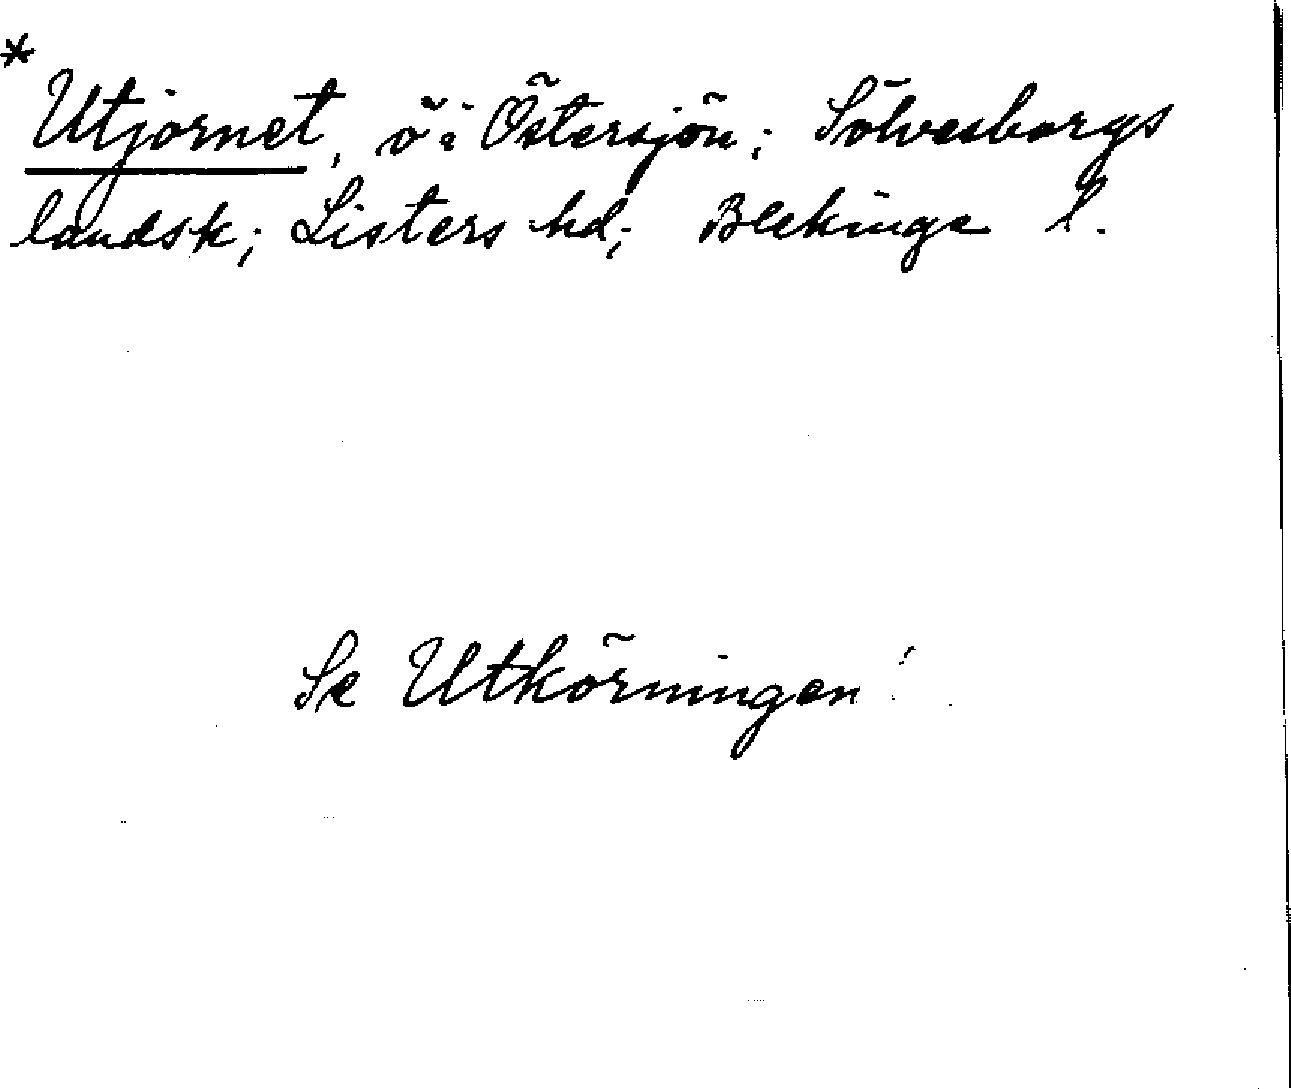 * Utjornet, ö i Östersjön; Sölvesborgs
landsk; Listers hd; Blekinge l.
Se Utkörningen!